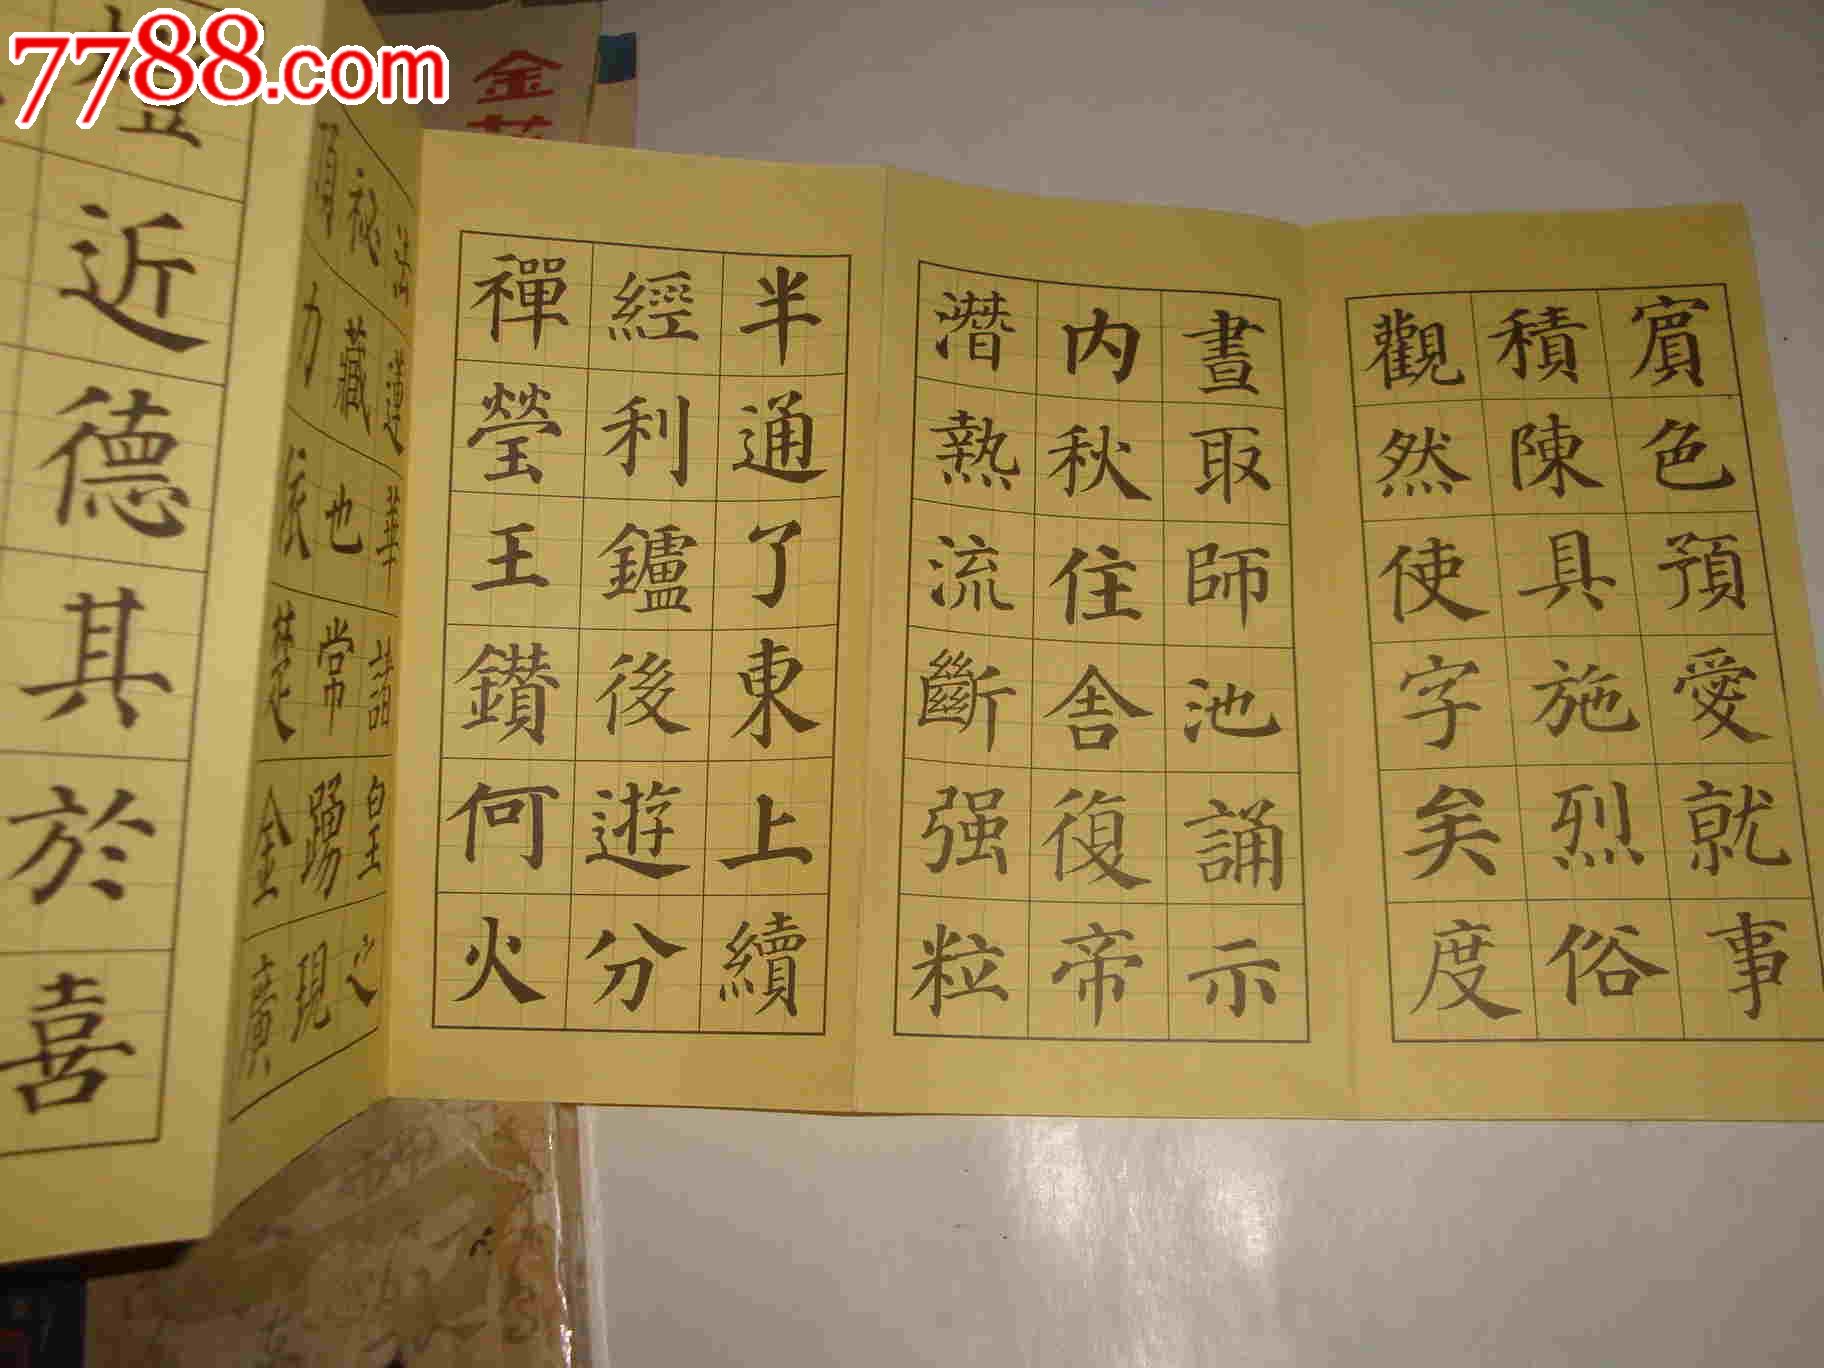 7788.com
金
賔色預愛就事
積陳具施烈俗
觀然使字矣度
晝取師池誦示
内秋住舍復帝
潛熱流斷强粒
半通了東上續
經利鑪後遊分
禪瑩王鑽何火
法運華請皇之
秘藏也常踢現
頂力依楚金廣
近德其於喜